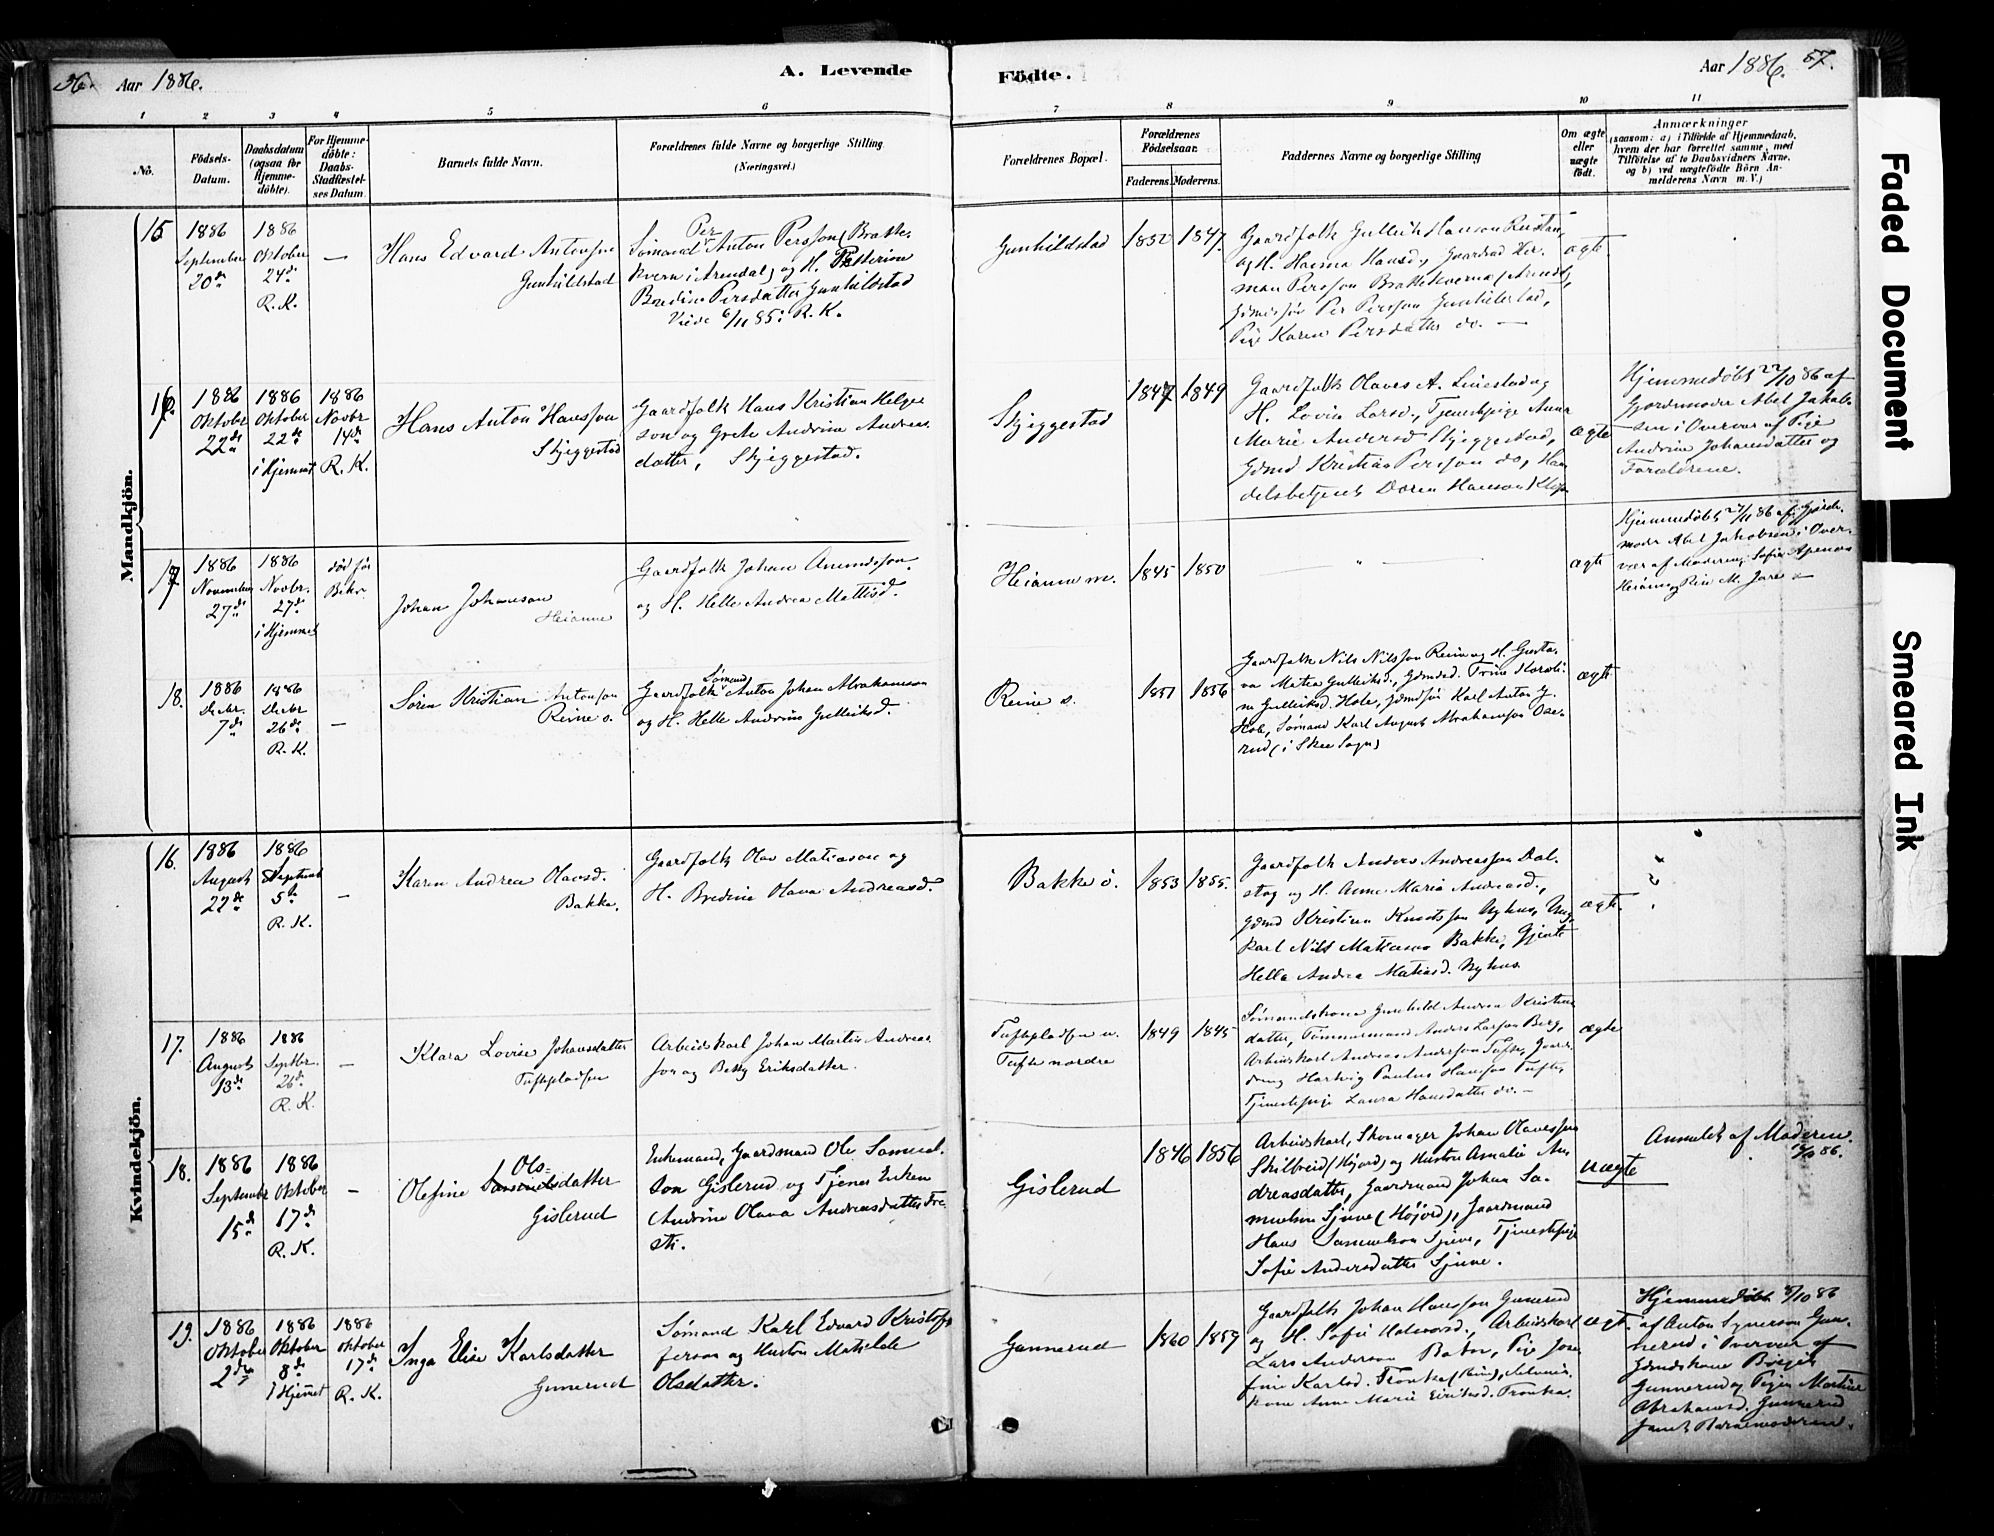 56.
Aar 1886.
A. Levende
Födte.
Aar 1886.
57.
1
2
3
4
5
6
7
8
9
10
11
No.
Födsels-
Datum.
Daabsdatum
(ogsaa for
Hjemme-
döbte).
For Hjemme-
döbte:
Daabs-
Stadfæstel-
ses Datum
Barnets fulde Navn.
Forældrenes fulde Navne og borgerlige Stilling
(Næringsvei.)
Forældrenes Bopæl.
Forældrenes
Födselsaar.
Faderens.
Moderens.
Faddernes Navne og borgerlige Stilling
Om ægte
eller
uægte
födt.
Anmærkninger
(saasom: a) i Tilfælde af Hjemmedaab,
hvem der har forrettet samme, med
Tilföielse af to Daabsvidners Navne,
og b) ved uægtefödte Börn An-
melderens Navn m. V.)
Mandkjön.
15.
1886
September
20de
1886
Oktober
24de
R. K.
—
Hans Edvard Antonssen
Gunhildstad
Per
Sömand Anton Persson (Bratte-
kvern i Arendal) og H.
Bredine Persdatter Gunhildstad
Viede 6/11 85: R. K.
Gunhildstad
1850
1847.
Gaardfolk Gullik Hansson
og H. Hanna Hansd., Gaardmd Her-
man Persson Brattekverna (Arendal),
Gdmssön Per Persson Gunhildstad,
Pige Karen Persdatter do. —
ægte
16.
1886
Oktober
22de
1886
Oktober
22de
i Hjemmet
1886
Novbr
14de
R. K.
Hans Anton Hansson
Skjeggestad
Gaardfolk Hans Kristian Helge-
son og Grete Andrine Andreas-
datter, Skjeggestad.
Skjeggestad
1847
1849
Gaardfolk Olaves A. Linnestad og
H. Lovise Larsd., Tjenestepige Anna
Marie Andersd Skjeggestad,
Gdmd Kristian Persson do, Han-
delsbetjent Doren Hansson
ægte
Hjemmedöbt 22/10 86 af
Gjordemoder Abel Jakob-
sen i Overvær af Pige
Andrine Johansdatter og
Forældrene.
17
1886
November
27de
1886
Novbr.
27de
i Hjemmet
död för
Bekr.
Johan Johansson
Heianne
Gaardfolk Johan Amundsson
og H. Helle Andrea Mattisd.
Heianne m.
1845
1850
— „ —
ægte
Hjemmedöbt 27/11 86 af Gjorde-
moder Abel Jakobsen i Over-
vær af Moderen, Sofie Apenæs
18.
1886
Decbr.
7de
1886
Decbr
26de
R. K.
—
Sören Kristian Antonson
Reine s.
Sömand
Gaardfolk Anton Johan Abrahamson
og H. Helle Andrine Gulleiksd.
Reine s.
1851
1856
Gaardfolk Nils Nilsson Reine og H. Gusta-
va Matea Gulleiksd., Gdmdsd. Trine Karoli-
ne Gulleiksd. Hole, Gdmdssön Karl Anton G.
Hole, Sömand Karl August Abrahamson Dae-
rud (i Skee Sogn)
ægte
Kvindekjön.
16.
1886
August
22de
1886
Septemb
5te
R. K.
—
Karen Andrea Olavsd.
Bakke.
Gaardfolk Olav Matiason og
H. Bredine Olava Andreasd.
Bakke ö.
1853
1855.
Gaardfolk Anders Andreasson Dal-
stog og H. Anne Maria Andreasd.,
Gdmd Kristian Knutsson Nyhus, Ung-
karl Nils Matiasson Bakke, Gjente
Hella Andrea Matiasd. Nyhus
ægte.
17.
1886
August
13de
1886
Septbr.
26de
R. K.
—
Klara Lovise Johansdatter
Tuftepladsen
Arbeidskarl Johan Martin Andreas-
son og Betsy Eriksdatter.
Tuftepladsen u.
Tufte nordre
1849
1845
Sömandskone Gunhild Andrea Kristian-
datter, Tömmermand Anders Larsson Berg,
Arbeidskarl Andreas Andersson Tufte, Gaard-
dreng Hartvig Paulus Hansson Tufte,
Tjenestepige Laura Hansdatter do. —
ægte
18.
1886
September
15de
1886
Oktober
17de
R. K.
—
Ols-
Olefine Samuelsdatter
Gislerud
Enkemand, Gaardmand Ole Samuel-
son Gislerud og Tjener Enken
Andrine Olava Andreasdatter Fre-
sti.
Gislerud
1846
1856
Arbeidskarl, Skomager Johan Olavessen
Skilbreid (Höjord) og Hustru Amalie An-
dreasdatter, Gaardmand Johan Sa-
muelson Sjueve (Höjord), Gaardmand
Hans Samuelson Sjueve, Tjenestepige
Sofie Andersdatter Sjueve.
uægte
Anmeldt af Moderen
19.
1886
Oktober
2den
1886
Oktober
8de
i Hjemmet
1886
Oktober
17de
R. K.
Inga Elise Karlsdatter
Gunnerud
Sömand Karl Edvard Kristof-
ferson og Hustru Matilde
Olsdatter.
Gunnerud
1860
1859
Gaardfolk Johan Hansson Gunnerud
og H. Sofie Halvorsd., Arbeidskarl
Lars Anderson Bakken, Pige Jose-
fine Karlsd. Tronka (Rein),
kone Anne Marie Eriksd. Tronka.
ægte
Hjemmedöbt 8/10 86
af Anton Synnerson Gun-
nerud i Overvær af
Gdmdskone Birgit
Gunnerud og Pigen Martine
Abrahamsd. Gunnerud
samt Barnemoderen.
Faded Document
Smeared Ink